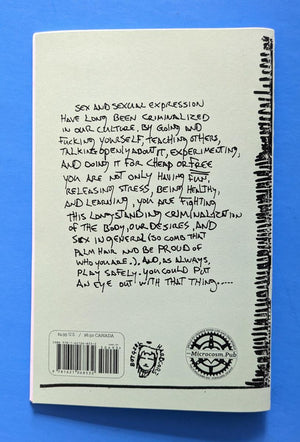 SEX AND SEXUAL EXPRESSION
HAVE LONG BEEN CRIMINALIZED
IN OUR CULTURE. BY GOING AND
FUCKING YOURSELF, TEACHING OTHERS,
TALKING OPENLY ABOUT IT, EXPERIMENTING,
AND DOING IT FOR CHEAP OR FREE
YOU ARE NOT ONLY HAVING FUN,
RELEASING STRESS, BEING HEALTHY,
AND LEARNING, YOU ARE FIGHTING
THIS LONGSTANDING CRIMINALIZATION
OF THE BODY, OUR DESIRES, AND
SEX IN GENERAL (SO COMB THAT
PALM HAIR AND BE PROUD OF
WHO YOU ARE.). AND, AS ALWAYS,
PLAY SAFELY. YOU COULD PUT
AN EYE OUT WITH THAT THING.....
Microcosm.Pub